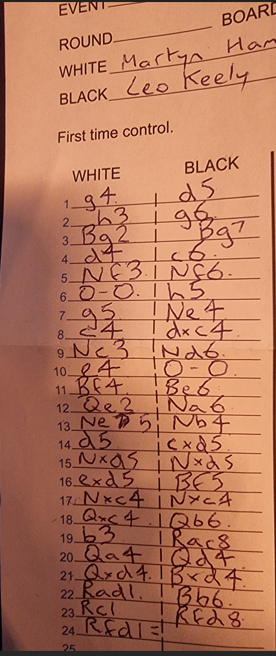 EVENT
BOARD
ROUND
WHITE Martyn Ham
BLACK Leo Keely
First time control.
WHITE BLACK
1 g4 d5
2 h3 g6
3 Bg2 Bg7
4 d4 c6
5 Nf3 Nf6
6 O-O h5
7 g5 Ne4
8 c4 dxc4
9 Nc3 Nd6
10 e4 O-O
11 Bf4 Be6
12 Qe2 Na6
13 Ne5 Nb4
14 d5 cxd5
15 Nxd5 Nxd5
16 exd5 Bf5
17 Nxc4 Nxc4
18 Qxc4 Qb6
19 b3 Rac8
20 Qa4 Qd4
21 Qxd4 Bxd4
22 Rad1 Bb6
23 Rc1 Rfd8
24 Rfd1 =
25